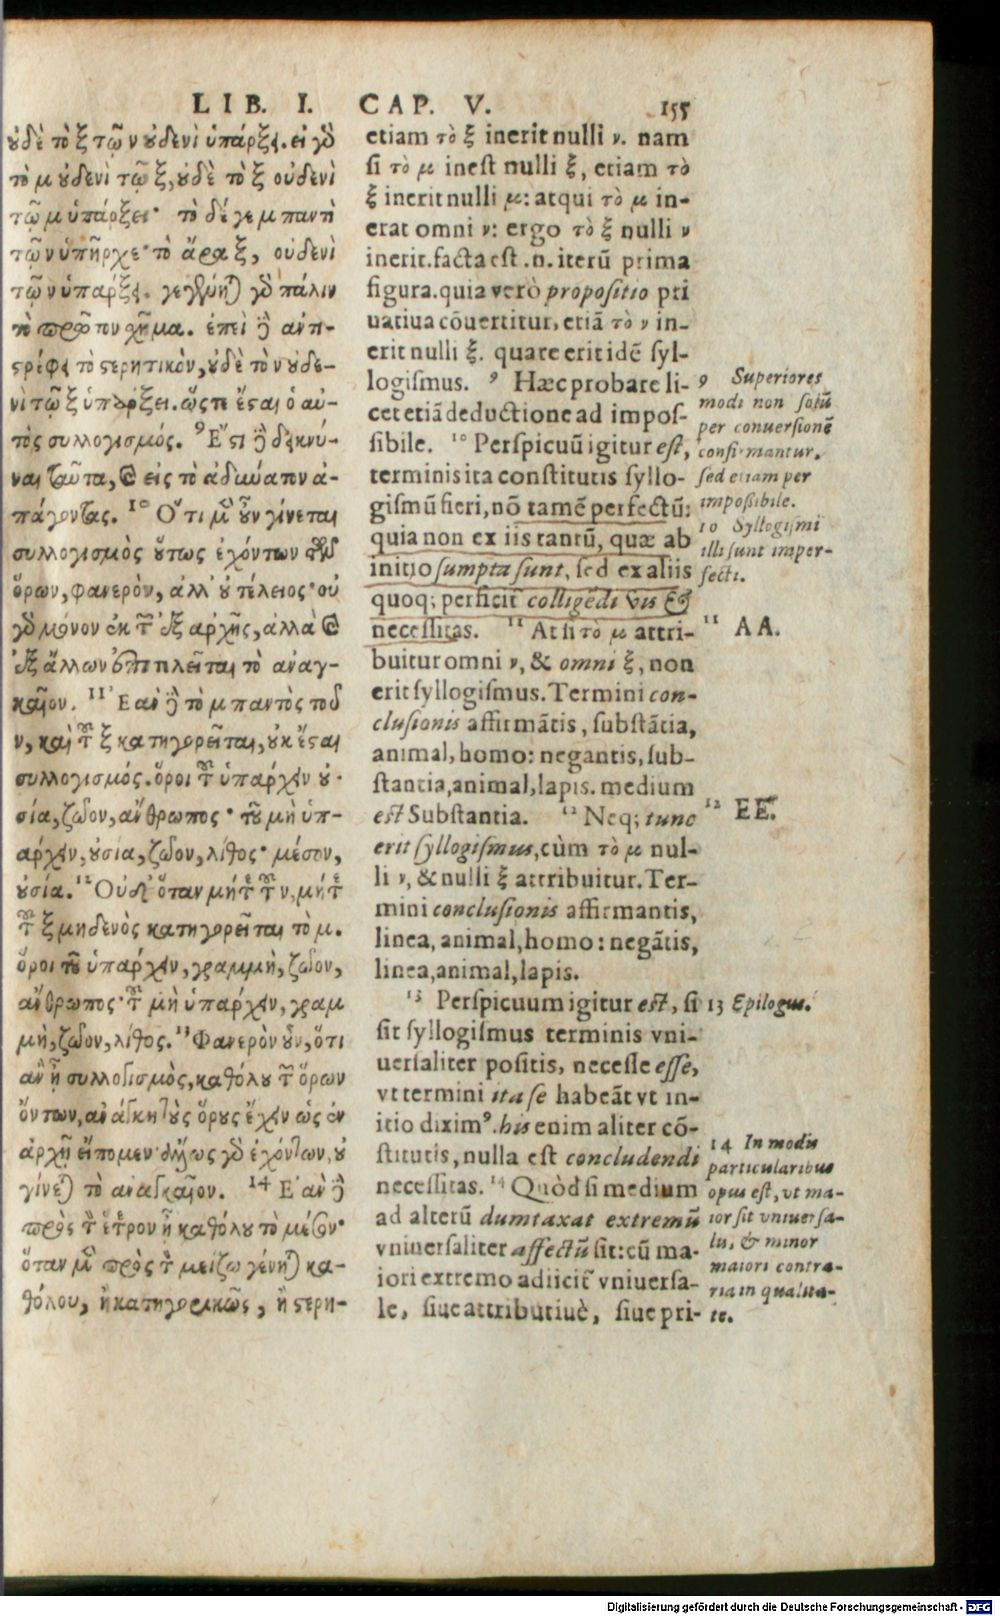 LIB. I. CAP. V. 155
ουδὲ τὸ ξ τῶν ν ουδενὶ ὑπάρξει. εἰ γὸ
τὸ μ ουδενὶ τῶ ξ, ουδὲ τὸ ξ οὐδενὶ
τῶ μ ὑπάρξει· τὸ δέ γε μ παντὶ
τῶ ν ὑπῆρχε· τὸ ἄρα ξ, οὐδενὶ
τῶ ν ὑπαρξει. γεγένηται γὸ πάλιν
τὸ πρῶτον χῆμα. ἐπεὶ δὲ ἀντι-
στρέφει τὸ στερητικὸν, ουδὲ τὸ ν ουδε-
νὶ τῶ ξ ὑπάρξει. ὥστε ἔσται ὁ αὐ-
τὸς συλλογισμός. 9 Ἔστι δὲ δεικνύ-
ναι ταῦτα, καὶ εἰς τὸ ἀδύνατον ἀ-
πάγοντας. 10 Ὅτι μὲν οὖν γίνεται
συλλογισμὸς οὕτως ἐχόντων τῶν
ὅρων, φανερὸν, ἀλλ' οὐ τέλειος· οὐ
γὸ μόνον ἐκ τῶν ἐξ ἀρχῆς, ἀλλὰ καὶ
ἐξ ἄλλων ἐπιτελεῖται τὸ ἀναγ-
καῖον. 11 Ἐὰν δὲ τὸ μ παντὸς τοῦ
ν, καὶ τοῦ ξ κατηγορεῖται, οὐκ ἔσται
συλλογισμός. ὅροι τοῦ ὑπάρχειν οὐ-
σία, ζῶον, ἄνθρωπος· τοῦ μὴ ὑπ-
αρχειν, ουσία, ζῶον, λίθος· μέσον,
ουσία. 12 Οὐδ' ὅταν μήτε τοῦ ν, μήτε
τοῦ ξ μηδενὸς κατηγορεῖται τὸ μ.
ὅροι τοῦ ὑπαρχειν, γραμμὴ, ζῶον,
ἄνθρωπος· τοῦ μὴ ὑπαρχειν, γραμ
μὴ, ζῶον, λίθος. 13 Φανερὸν οὖν, ὅτι
ἂν ᾖ συλλογισμὸς, καθόλου τῶν ὅρων
ὄντων, ἀνάγκη τοὺς ὅρους ἔχειν ὡς ἐν
ἀρχῇ εἴπομεν· ἄλλως γὸ ἐχόντων, οὐ
γίνεται τὸ ἀναγκαῖον. 14 Ἐὰν δὲ
πρὸς τὸν ἕτερον ᾖ καθόλου τὸ μέσον·
ὅταν μὲν πρὸς τὸν μείζω γένηται κα-
θόλου, ἢ κατηγορικῶς, ἢ στερη-
etiam τὸ ξ inerit nulli ν. nam
si τὸ μ inest nulli ξ, etiam τὸ
ξ inerit nulli μ: atqui τὸ μ in-
erat omni ν: ergo τὸ ξ nulli ν
inerit. facta est .n. iterũ prima
figura. quia verò propositio pri
uatiua cõuertitur, etiã τὸ ν in-
erit nulli ξ. quare erit idẽ syl-
logismus. 9 Hæc probare li-
cet etiã deductione ad impos-
sibile. 10 Perspicuũ igitur est,
terminis ita constitutis syllo-
gismũ fieri, nõ tamẽ perfectũ:
quia non ex iis tantũ, quæ ab
initio sumpta sunt, sed ex aliis
quoq; perficit̃ colligẽdi vis &
necessitas. 11 At si τὸ μ attri-
buitur omni ν, & omni ξ, non
erit syllogismus. Termini con-
clusionis affirmãtis, substãtia,
animal, homo: negantis, sub-
stantia, animal, lapis. medium
est Substantia. 12 Neq; tunc
erit syllogismus, cùm τὸ μ nul-
li ν, & nulli ξ attribuitur. Ter-
mini conclusionis affirmantis,
linea, animal, homo: negãtis,
linea, animal, lapis.
13 Perspicuum igitur est, si
sit syllogismus terminis vni-
uersaliter positis, necesse esse,
vt termini ita se habeãt vt in-
itio diximꝰ. his enim aliter cõ-
stitutis, nulla est concludendi
necessitas. 14 Quòd si medium
ad alterũ dumtaxat extremũ
vniuersaliter affectũ sit: cũ ma-
iori extremo adiicit̃ vniuersa-
le, siue attributiuè, siue pri-
9 Superiores
modi non solũ
per conuersionẽ
confirmantur,
sed etiam per
impossibile.
10 Syllogismi
illi sunt imper-
fecti.
11 AA.
12 EE.
13 Epilogus.
14 In modis
particularibus
opus est, vt ma-
ior sit vniuersa-
lis, & minor
maiori contra-
ria in qualita-
te.
Digitalisierung gefördert durch die Deutsche Forschungsgemeinschaft - DFG